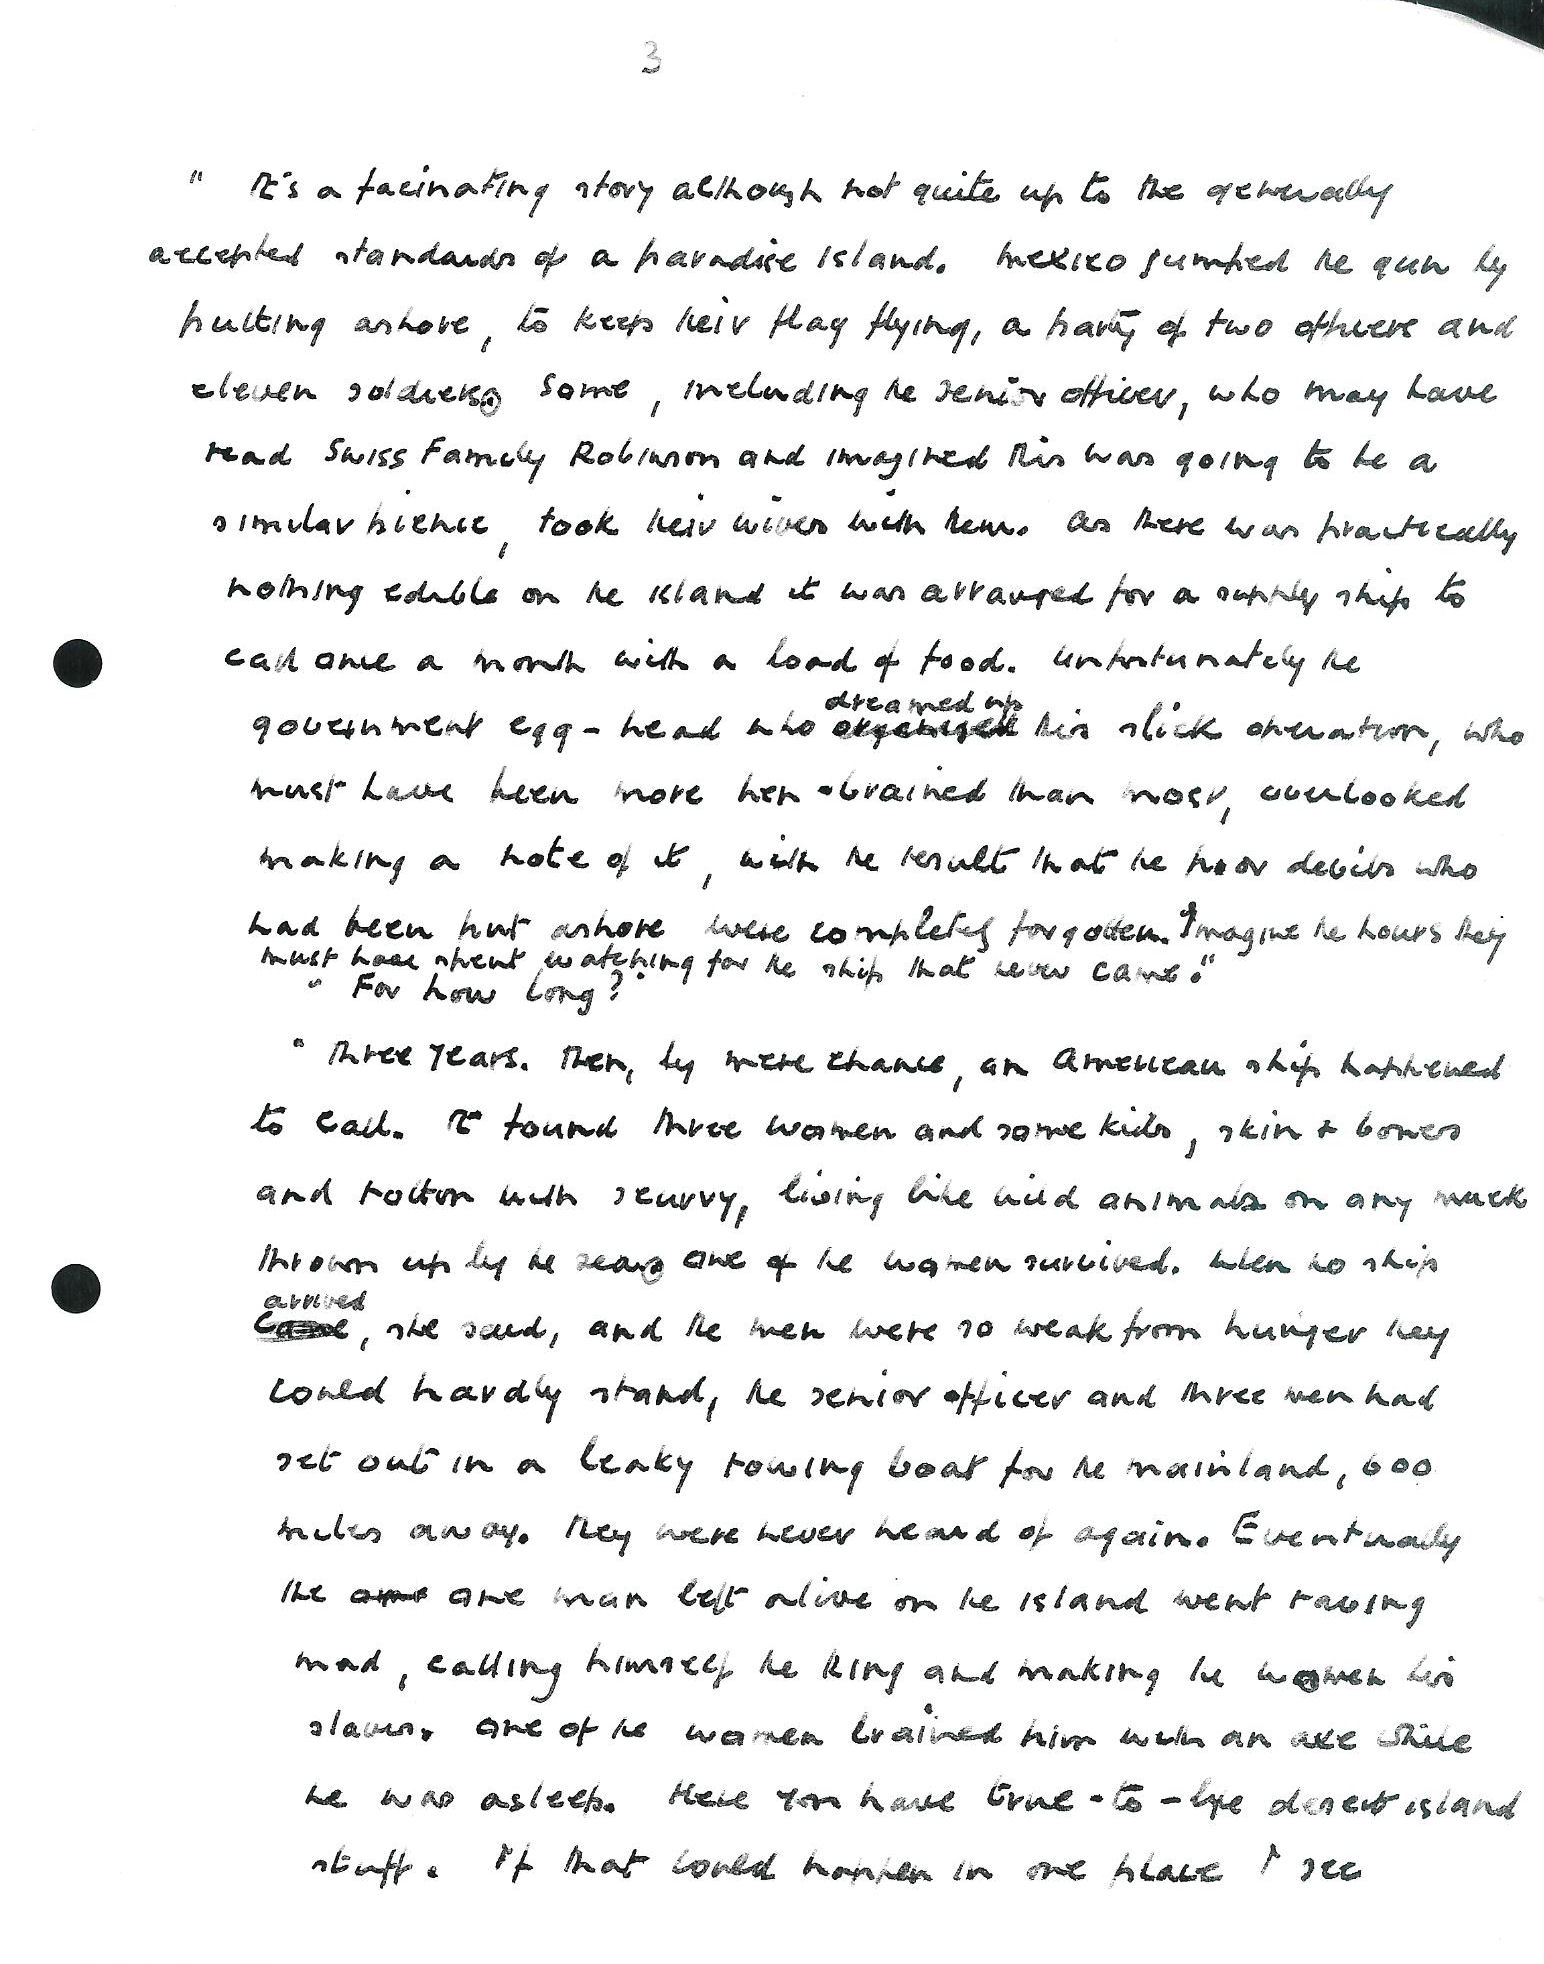 3
" It's a facinating story although not quite up to the generally
accepted standards of a paradise island. Mexico jumped the gun by
putting ashore, to keep their flag flying, a party of two officers and
eleven soldiers. Some, including the senior officer, who may have
read Swiss Family Robinson and imagined this was going to be a
similar picnic, took their wives with them. As there was practically
nothing edible on the island it was arranged for a supply ship to
call once a month with a load of food. Unfortunately the
dreamed up
government egg-head who organised this slick operation, who
must have been more hen-brained than most, overlooked
making a note of it, with the result that the poor devils who
had been put ashore were completely forgotten. Imagine the hours they
must have spent watching for the ship that never came."
" For how long?"
" Three years. Then, by mere chance, an American ship happened
to call. It found three women and some kids, skin + bones
and rotten with scurvy, living like wild animals on any muck
thrown up by the sea. One of the women survived. When no ship
arrived
came, she said, and the men were so weak from hunger they
could hardly stand, the senior officer and three men had
set out in a leaky rowing boat for the mainland, 600
miles away. They were never heard of again. Eventually
the one man left alive on the island went raving
mad, calling himself the King and making the women his
slaves. One of the women brained him with an axe while
he was asleep. Here you have true-to-life desert island
stuff. If that could happen in one place I see